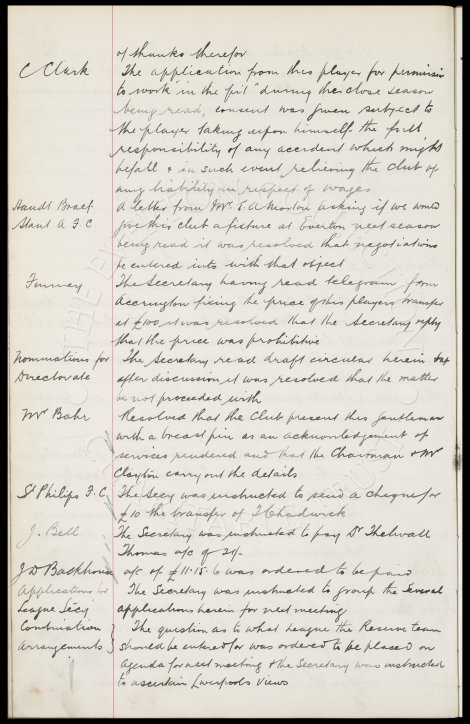 of thanks therefor
C Clark The application from this player for permission
to "work in the pit" during the close season
being read, consent was given subject to
the player taking upon himself the full
responsibility of any accident which might
befall & in such event relieving the Club of
any liability in respect of wages
A letter from Mr. E A Morton asking if we would
A F C give this club a fixture at Everton next season
being read it was resolved that negotiations
be entered into with that object
Finney The Secretary having read telegram from
Accrington fixing the price of this players transfer
at £100, it was resolved that the Secretary reply
that the price was prohibitive
Nominations for The Secretary read draft circular herein &
Directorate after discussion, it was resolved that the matter
be not proceeded with
Mr Bahr Resolved that the Club present this gentleman
with a breast pin as an acknowledgement of
services rendered and that the Chairman & Mr
Clayton carry out the details
St Philips F.C The Secy was instructed to send a cheque for
£10 the transfer of J Chadwick
J. Bell The Secretary was instructed to pay Dr Thelwall
Thomas a/c of
J D Backhouse a/c of £11-15-6 was ordered to be paid
Applications for The Secretary was instructed to group the several
League Secy applications herein for next meeting
Combination The question as to what league the Reserve team
arrangements should be entered for was ordered to be placed on
Agenda for next meeting & the Secretary was instructed
to ascertain Liverpools views